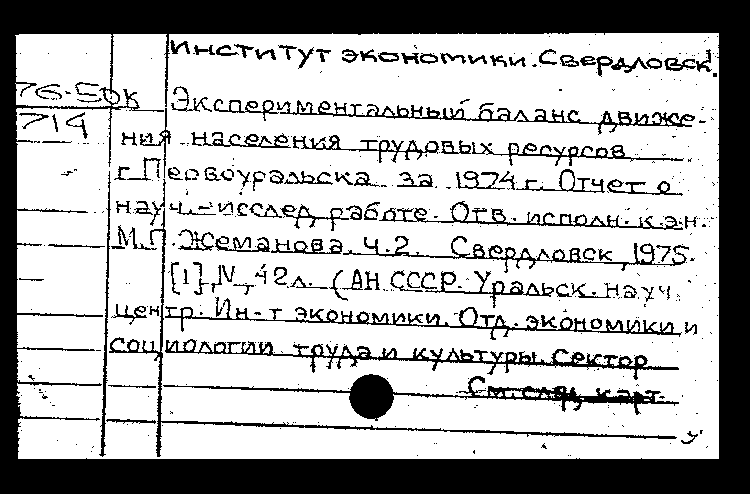 Институт экономики. Свердловск.
76-50к Экспериментальный баланс движе-
714 ния населения трудовых ресурсов
г. Первоуральска за 1974 г. Отчет о
науч.-исслед. работе. Отв. исполн. к.э.н.
М.П. Жеманова. Ч.2. Свердловск, 1975.
[1], IV, 42л. (АН СССР. Уральск. науч.
центр. Ин-т экономики. Отд. экономики и
социологии труда и культуры. Сектор
См. след. карт.